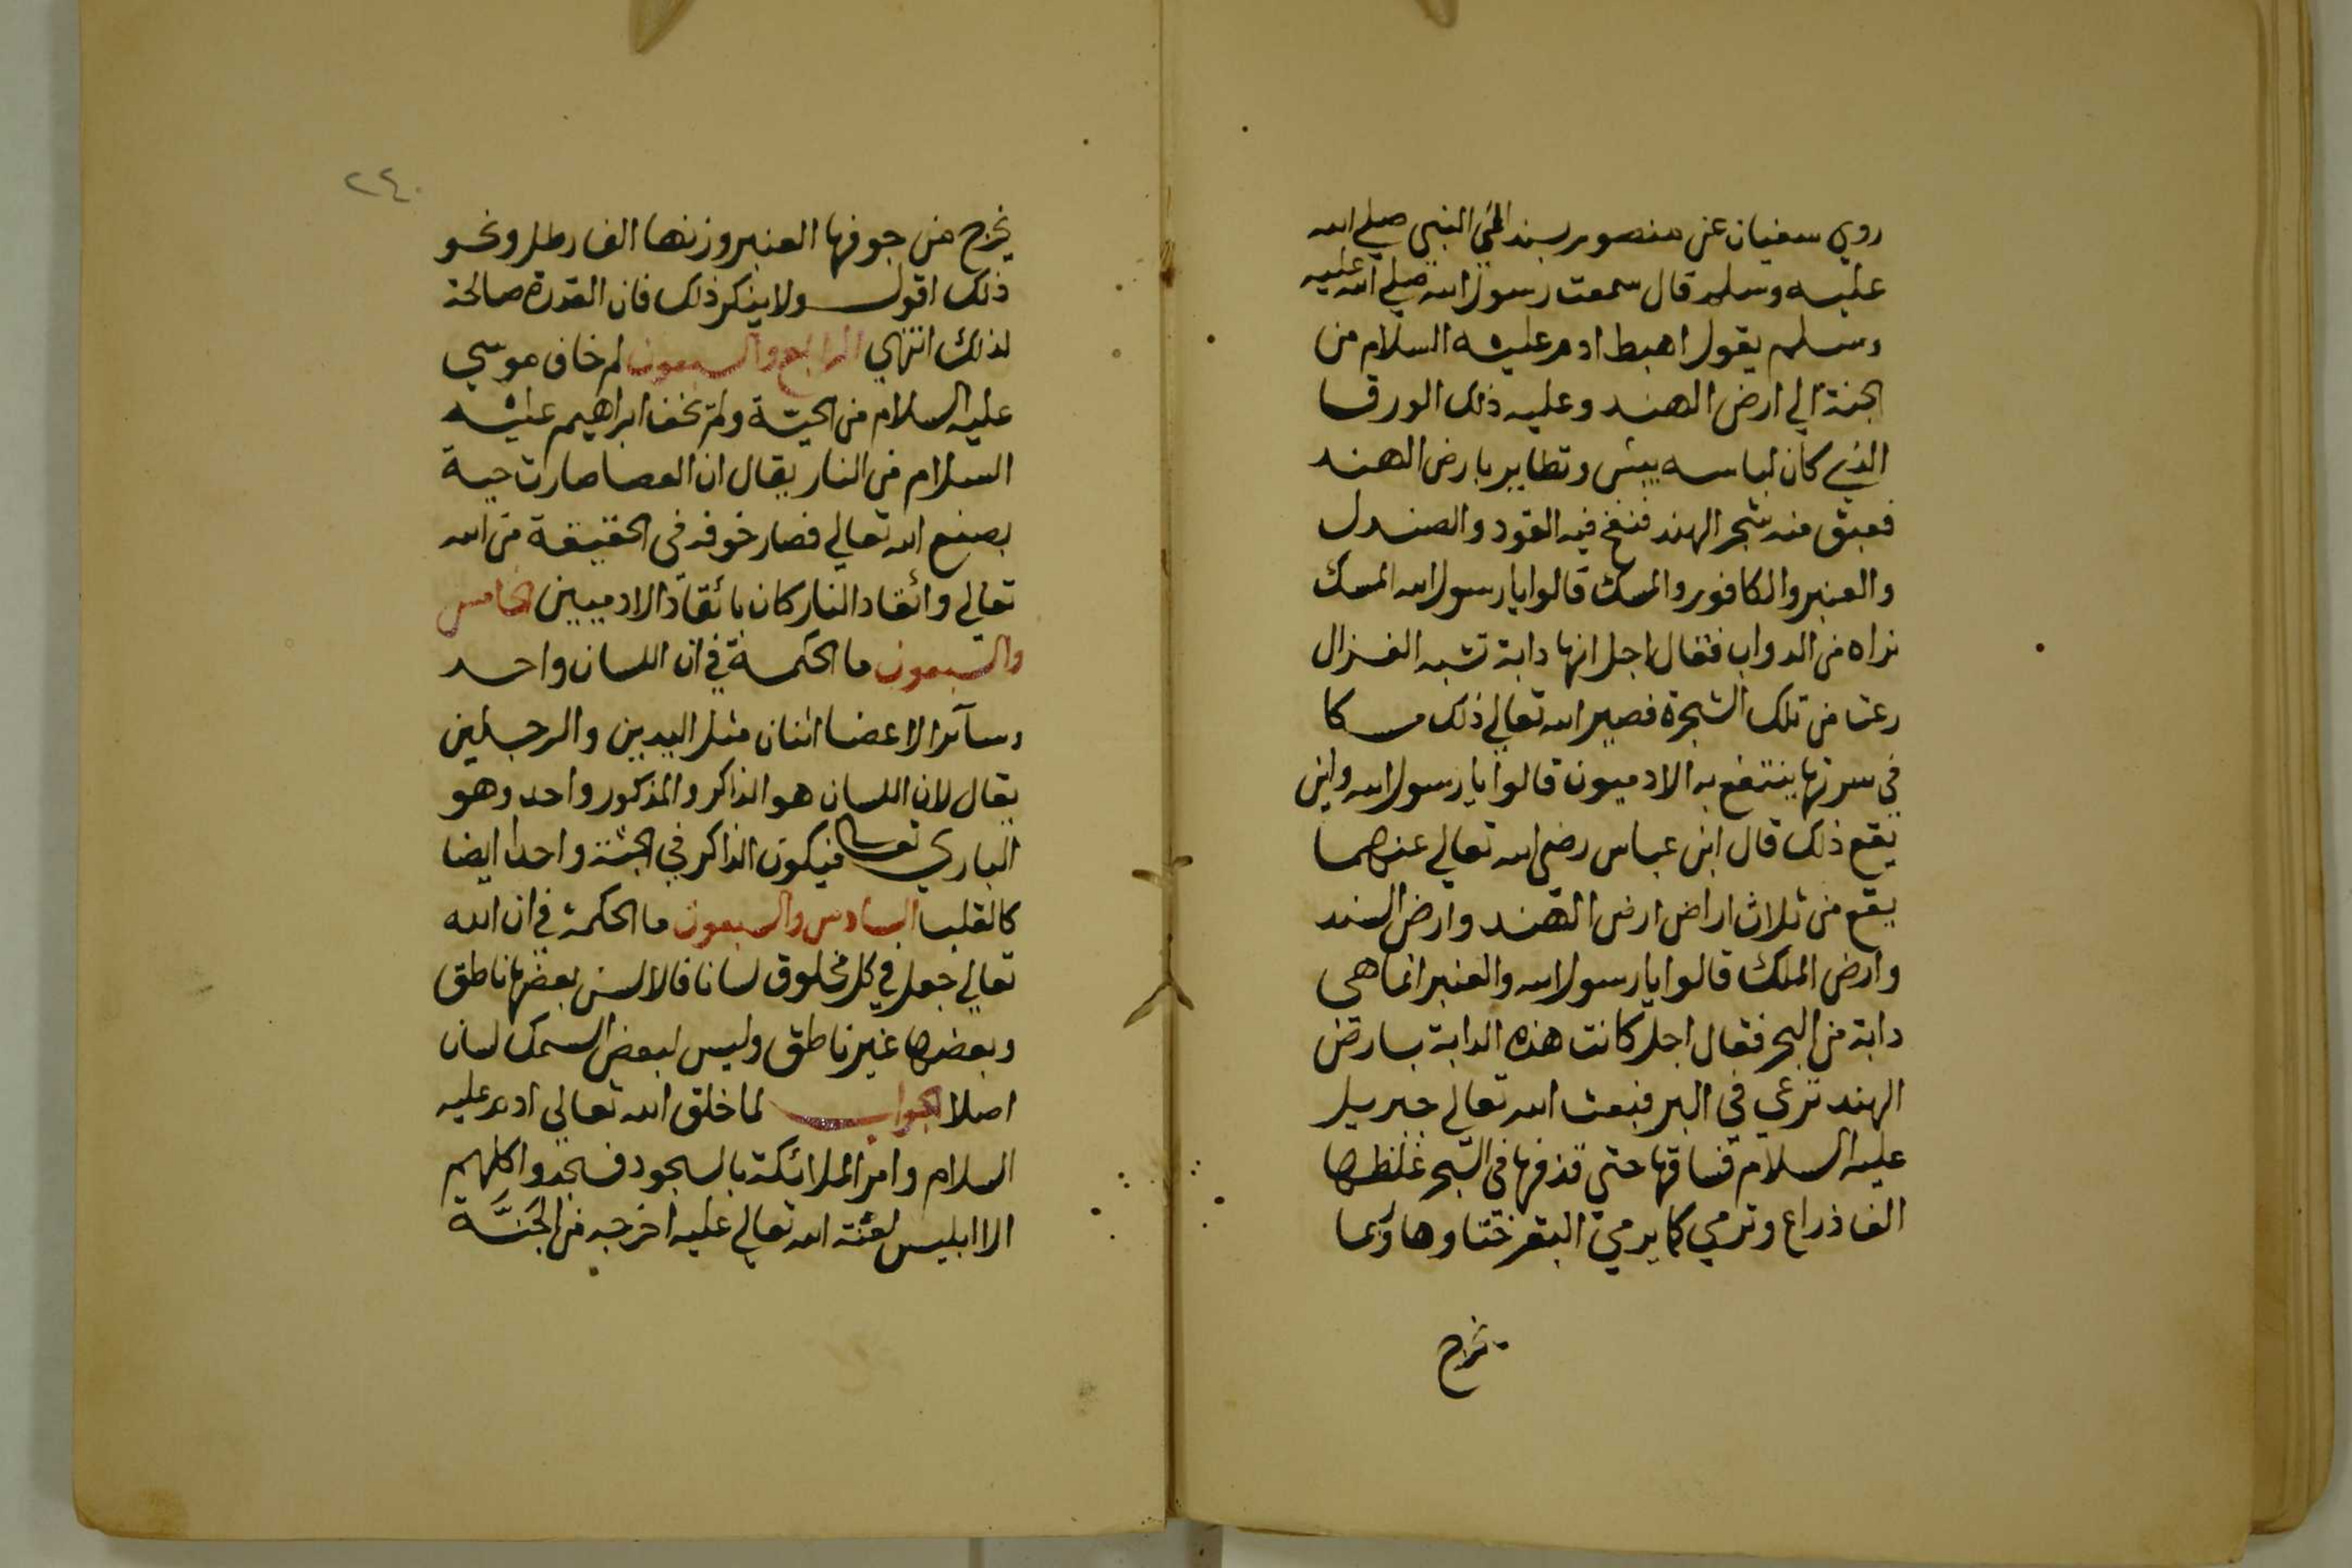 روي سفيان عن منصور بسنده الي النبي صلي الله
عليه وسلم قال سمعت رسول الله صلي الله عليه
وسلم يقول اهبط ادم عليه السلام من
الجنة الي ارض الهند وعليه ذلك الورق
الذي كان لباسه يبس وتطاير بارض الهند
فعبق منه شجر الهند فنفخ فيه العود والصندل
والعنبر والكافور والمسك قالوا يا رسول الله المسك
نراه من الدواب فقال اجل انها دابة تشبه الغزال
رعت من تلك الشجرة فصير الله تعالي ذلك مسكا
في سرتها ينتفع به الادميون قالوا يا رسول الله واين
يقع ذلك قال ابن عباس رضي الله تعالي عنهما
يقع من ثلاث اراض ارض الهند وارض السند
وارض الملك قالوا يا رسول الله والعنبر انما هي
دابة من البحر فقال اجل كانت هذه الدابة بارض
الهند ترعي في البر فبعث الله تعالي جبريل
عليه السلام فساقها حتي قذفها في البحر غلظها
الف ذراع وترمي كما يرمي البقر ختاوها وربما
يخرج
٢٤٠
يخرج من جوفها العنبر وزنها الف رطل ونحو
ذلك اقول ولا ينكر ذلك فان القدرة صالحة
لذلك انتهي الرابع والسبعون لم خاف موسي
عليه السلام من الحية ولم يخف ابراهيم عليه
السلام من النار يقال ان العصا صارت حية
بصنع الله تعالي فصار خوفه في الحقيقة من الله
تعالي وائقاد النار كان بائقاد الادميين الخامس
والسبعون ما الحكمة في ان اللسان واحد
وسائر الاعضا اثنان مثل اليدين والرجلين
يقال لان اللسان هو الذاكر والمذكور واحد وهو
الباري تعالي فيكون الذاكر في الجثة واحدا ايضا
كالقلب السادس والسبعون ما الحكمة في ان الله
تعالي جعل في كل مخلوق لسانا فالالسن بعضها ناطق
وبعضها غير ناطق وليس لبعض السمك لسان
اصلا الجواب لما خلق الله تعالي ادم عليه
السلام وامر الملائكة بالسجود فسجدوا كلهم
الا ابليس لعنة الله تعالي عليه اخرجه من الجنة